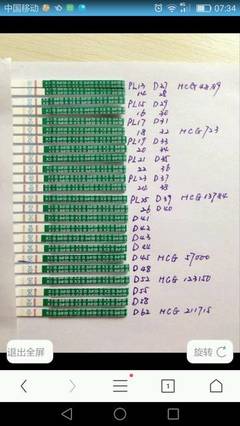 中国移动 07:34
PL13 D27 HCG
14 28
PL15 D29
16 30
PL17 D31
18 32 HCG 723
PL19 D33
20 34
PL21 D35
22 36
PL23 D37
24 38
PL25 D39 HCG
26 D40
D41
D42
D43
D44
D45 HCG 57000
D48
D52 HCG 123150
D55
D58
D62 HCG 211715
退出全屏 旋转
1